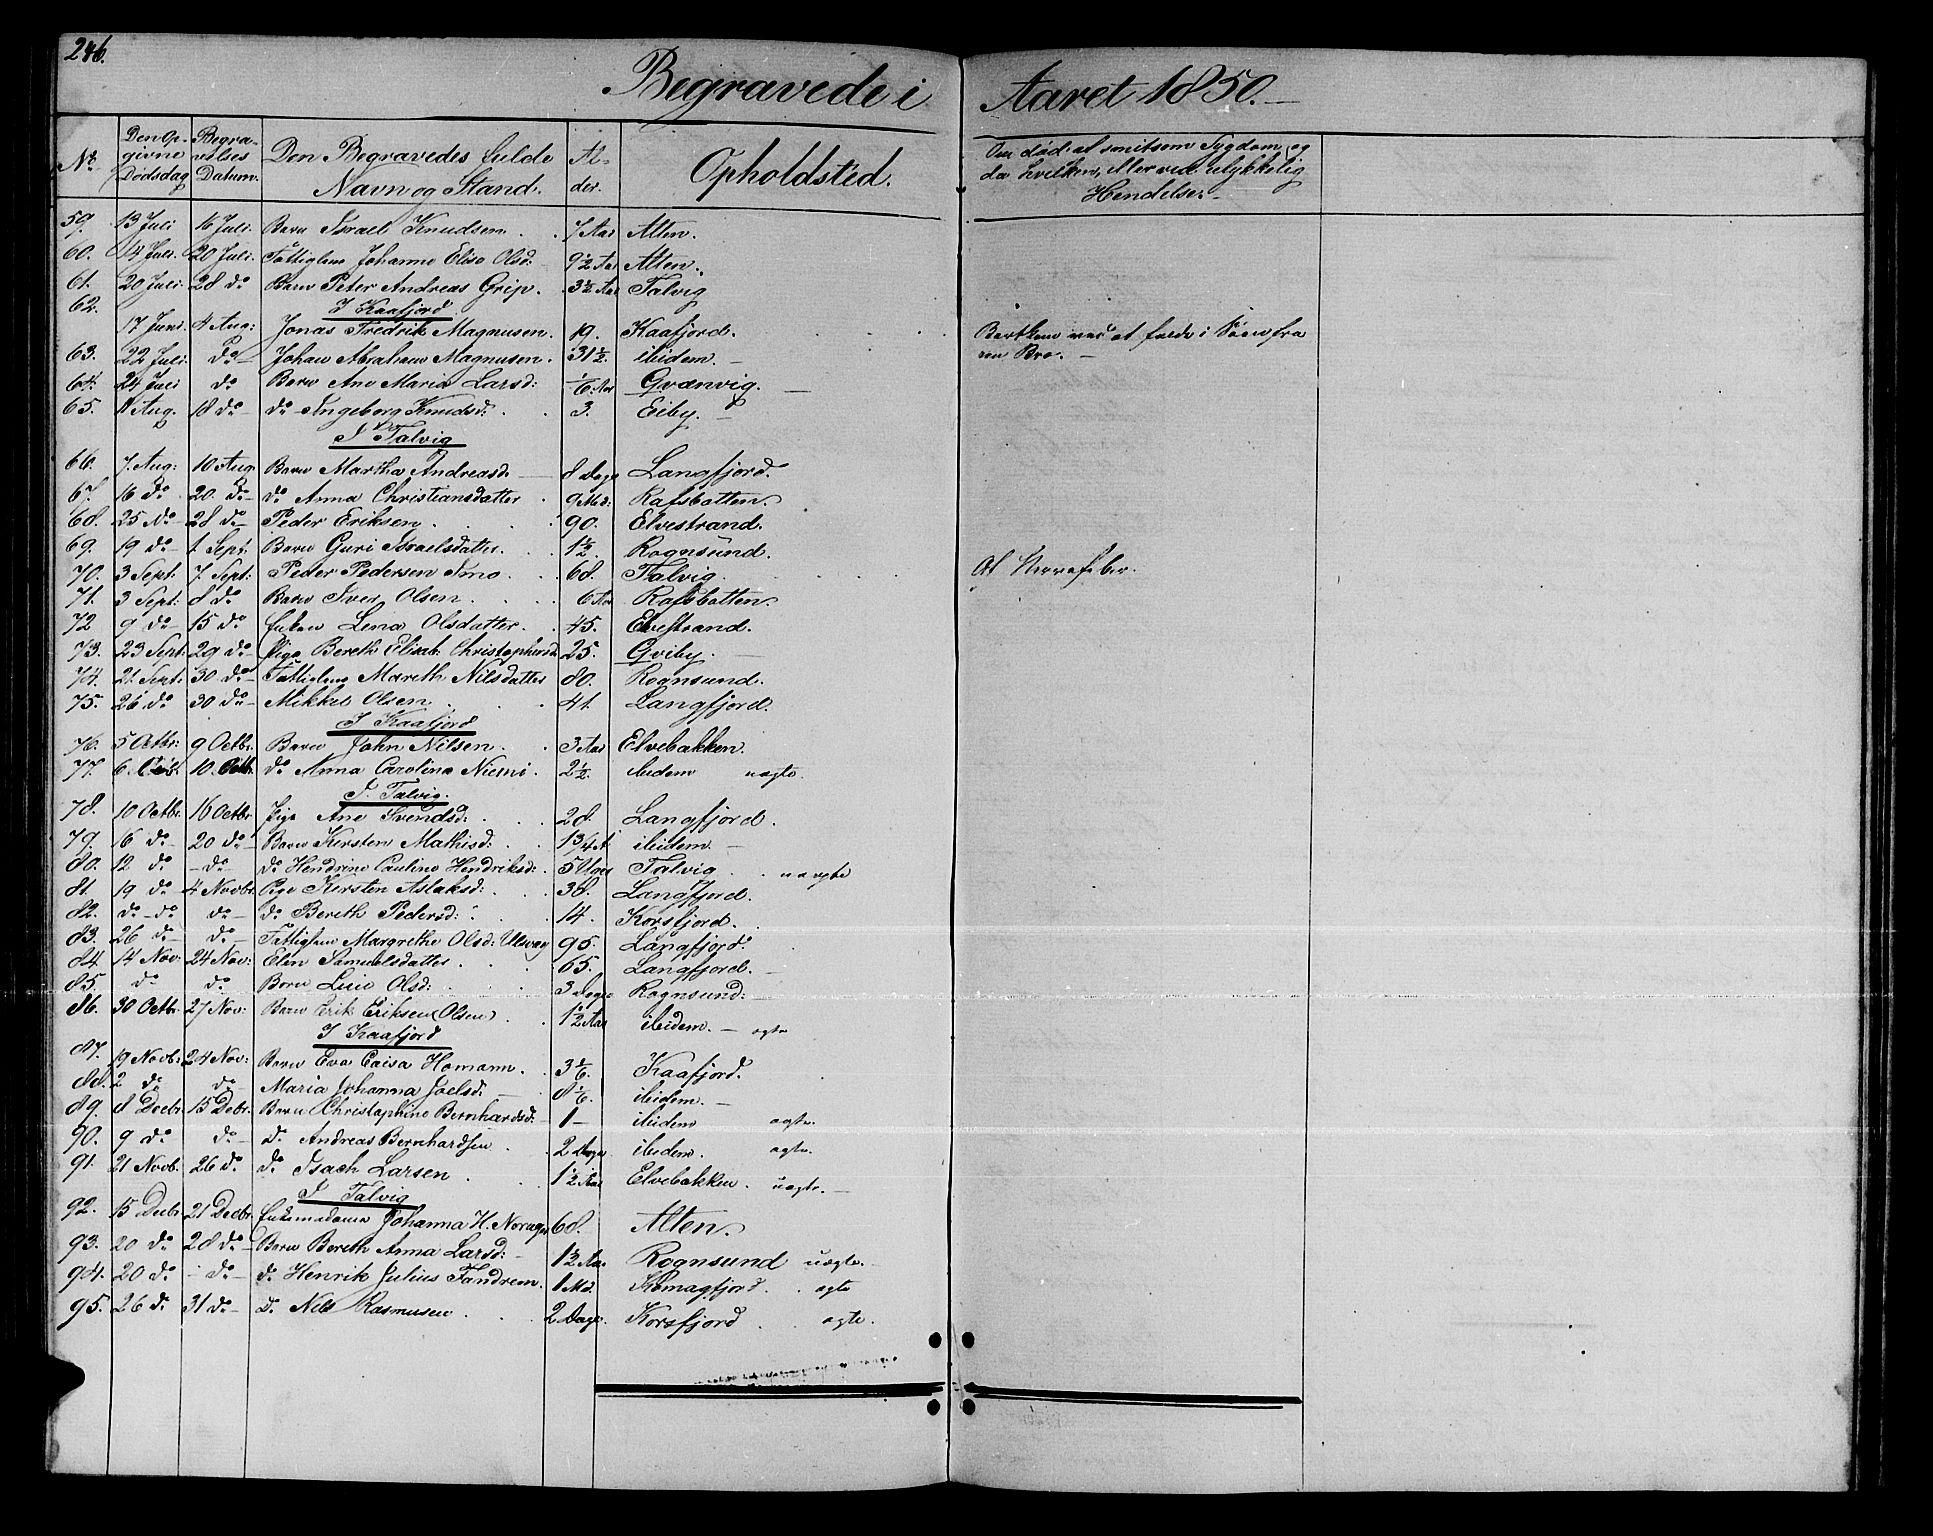 246.
Begravede i Aaret 1850.
No. Den Opgivne Dødsdag Begravelses Datum. Den Begravedes fulde Navn og Stand. Alder. Opholdsted. Om død af smitsom Sygdom, og da hvilken, eller ved ulykkelig Hendelse.
59. 13 Juli 16 Juli. Barn Israel Knudsen. 7 Aar Alten.
60. 14 Juli. 20 Juli. Fattiglem Johanne Elisa Olsd: 9½ Aar Alten.
61. 20 Juli. 28 do Barn Peter Andreas Grip. 3½ Aar Talvig
I Kaafjord.
62. 17 Juni. 4 Aug: Jonas Fredrik Magnusen. 19. Kaafjord. ved at falde i Søen fra en Bro.
63. 22 Juli. do Johan Abraham Magnusen. 31½. ibidem.
64. 24 Juli do Barn Ane Maria Larsd: 1/6 Aar Qvænvig.
65. 11 Aug. 18 do do Ingeborg Knudsd: 3. Eiby.
I Talvig
66. 7. Aug: 10 Aug Barn Martha Andreasd. 8 Dage Langfjord.
67. 16 do 20. do do Anna Christiansdatter 9 Md: Rafsbotten.
68. 25 do 28 do Peder Eriksen. 90. Elvestrand.
69. 19 do 1 Sept. Barn Guri Israelsdatter. 1½. Rognsund.
70. 3 Sept: 7. Sept: Peder Pedersen Smo. 68. Talvig. Af Nervefeber.
71. 3 Sept: 8 do Barn Iver Olsen. 6 Aar Rafsbotten.
72 9 do 15 do Enken Lena Olsdatter. 45. Elvestrand.
73. 23 Sept: 29 do Pige Bereth Elisab. Christophersd 25. Qviby.
74. 21. Sept: 30 do Fattiglem Mareth Nilsdatter 80. Rognsund.
75. 26 do 30 do Mikkel Olsen. 41. Langfjord.
I Kaafjord
76. 5 Octbr: 9 Octbr. Barn John Nilsen. 3 Aar Elvebakken.
77. 6. 10. Octb. do Anna Carolina Niemi. 2½. ibidem uægte.
I Talvig.
78. 10 Octbr. 16 Octbr. Pige Ane Svendsd: 28. Langfjord.
79. 16 do 20 do Barn Kersten Mathisd: 1¾ A ibidem
80. 12 do do do Hendrine Pauline Hendriksd: 5 Uger Talvig. uægte
81. 19 do 4 Novbr. Pige Kirsten Aslaksd: 38. Langfjord.
82. do do do do Bereth Pedersd: 14. Korsfjord.
83. 26 do do Fattiglem Margrethe Olsd: Ulsvag 95. Langfjord.
84. 14 Nov. 24 Nov: Elen Samuelsdatter. 65. Langfjord.
85. do do Barn Olsd: 3 Dage Rognsund:
86. 30 Octbr. 27 Nov: Barn Erik Eriksen (Olsen). 1½ Aar ibidem. ægte
I Kaafjord
87. 19 Novb: 24 Nov: Barn Eva Caisa Homann. 3 1/6. Kaafjord.
88. 2 do do Maria Johanna Joelsd: 8 1/6. ibidem.
89. 8 Decbr. 15 Debr. Barn Christophine Bernhardsd: 1 ibidem ægte.
90. 9 do do do Andreas Bernhardsen. 2 Dage ibidem. ægte.
91. 21 Novb. 26 do do Isach Larsen. 1½ Aar Elvebakken. uægte.
I Talvig
92. 15 Decbr. 21 Decbr. Enkemadame Johanna H. Norager 68. Alten.
93. 20 do 28 do Barn Bereth Anna Larsd: 1½ Aar Rognsund uægte.
94. 20 do do do Henrik Julius Tandrem. 1 Md. Komagfjord. ægte
95. 26 do 31 do do Nils Rasmusen. 2 Dage. Korsfjord. ægte.